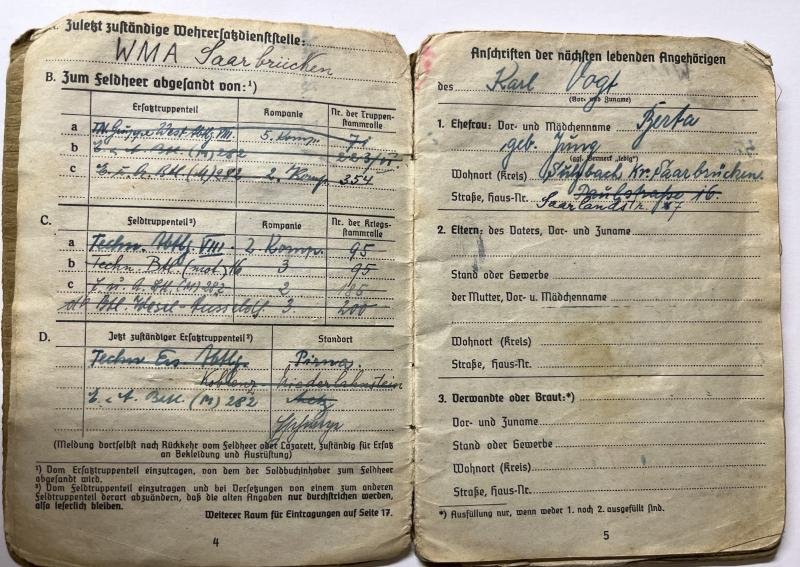 Zuletzt zuständige Wehrersatzdienststelle:
WMA Saarbrücken
B. Zum Feldheer abgesandt von:¹)
Ersatztruppenteil Kompanie Nr. der Truppenstammrolle
a 5. Komp. 71
b E. u. A. Btl. (M) 282
c E. u. A. Btl. (M) 282 2. Komp. 354
C. Feldtruppenteil²) Kompanie Nr. der Kriegsstammrolle
a Techn. Abtlg. VIII 2 Komp. 95
b Techn. Btl. (mot) 16 3 95
c E. u. A. Btl. (M) 282 2
d Btl. Wesel Düsseldf. 3. 200
D. Jetzt zuständiger Ersatztruppenteil²) Standort
Techn. Ers. Abtlg. Pirna
Koblenz Niederlahnstein
E. u. A. Btl. (M) 282 Metz
(Meldung dortselbst nach Rückkehr vom Feldheer oder Lazarett, zuständig für Ersatz
an Bekleidung und Ausrüstung)
¹) Vom Ersatztruppenteil einzutragen, von dem der Soldbuchinhaber zum Feldheer
abgesandt wird.
²) Vom Feldtruppenteil einzutragen und bei Versetzungen von einem zum anderen
Feldtruppenteil derart abzuändern, daß die alten Angaben nur durchstrichen werden,
also leserlich bleiben.
Weiterer Raum für Eintragungen auf Seite 17.
4
Anschriften der nächsten lebenden Angehörigen
des Karl Vogt
(Vor- und Zuname)
1. Ehefrau: Vor- und Mädchenname Berta
geb. Jung
(ggf. Vermerk „ledig")
Wohnort (Kreis) Sulzbach Kr. Saarbrücken
Straße, Haus-Nr. Paulstrasse 16.
Saarlandstr. 87
2. Eltern: des Vaters, Vor- und Zuname
Stand oder Gewerbe
der Mutter, Vor- u. Mädchenname
Wohnort (Kreis)
Straße, Haus-Nr.
3. Verwandte oder Braut:*)
Vor- und Zuname
Stand oder Gewerbe
Wohnort (Kreis)
Straße, Haus-Nr.
*) Ausfüllung nur, wenn weder 1. noch 2. ausgefüllt sind.
5